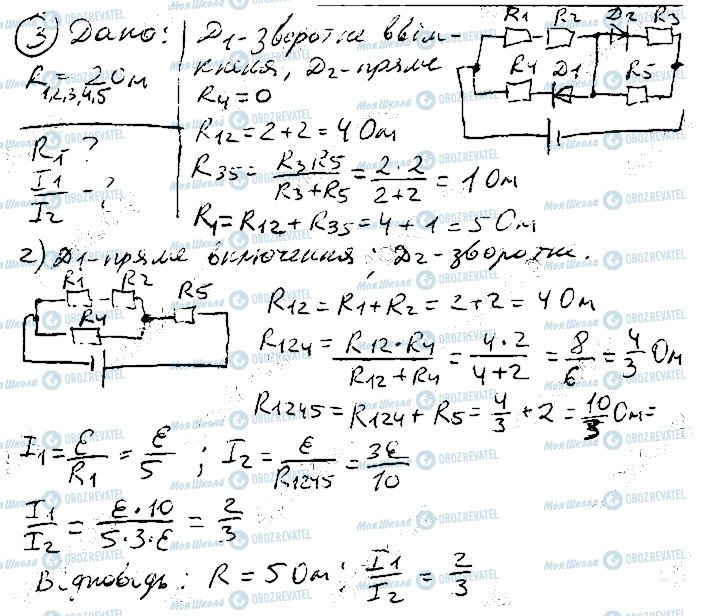 ③ Дано:
R1,2,3,4,5 = 2 Ом
R1 - ?
I1/I2 - ?
D1-зворотне ввім-
кнення, D2-пряме
R4 = 0
R12 = 2+2 = 4 Ом
R35 = R3 R5/(R3+R5) = 2·2/(2+2) = 1 Ом
R1 = R12 + R35 = 4 + 1 = 5 Ом
R1 R2 D2 R3
R4 D1 R5
2) D1-пряме включення; D2-зворотне.
R1 R2 R5
R4
R12 = R1 + R2 = 2+2 = 4 Ом
R124 = R12·R4/(R12+R4) = 4·2/(4+2) = 8/6 = 4/3 Ом
R1245 = R124 + R5 = 4/3 + 2 = 10/3 Ом =
I1 = ε/R1 = ε/5 ; I2 = ε/R1245 = 3ε/10
I1/I2 = ε·10/(5·3·ε) = 2/3
Відповідь: R = 5 Ом; I1/I2 = 2/3
Моя Школа OBOZREVATEL